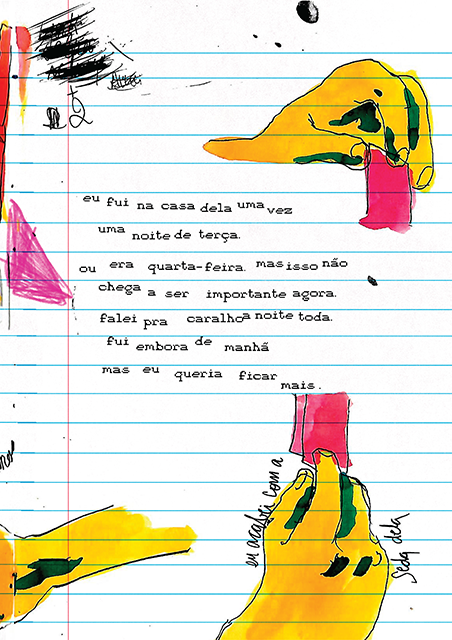 eu fui na casa dela uma vez
uma noite de terça.
ou era quarta-feira. mas isso não
chega a ser importante agora.
falei pra caralho a noite toda.
fui embora de manhã
mas eu queria ficar
mais.
eu acabei com a
seda dela